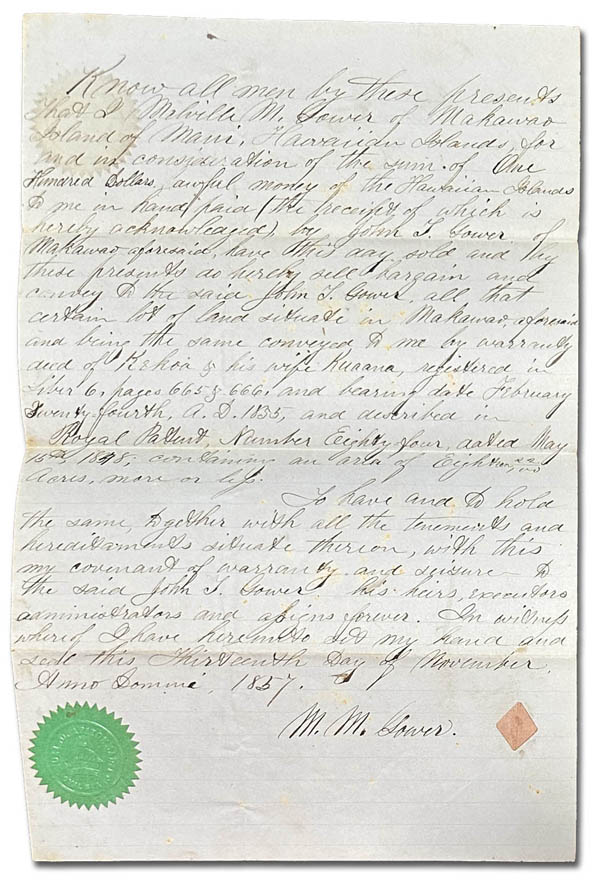 Know all men by these presents
that I, Melville M. Gower of Makawao
Island of Maui, Hawaiian Islands, for
and in consideration of the sum of One
Hundred Dollars, lawful money of the Hawaiian Islands
to me in hand paid (the receipt of which is
hereby acknowledged) by John T. Gower of
Makawao aforesaid, have this day sold and by
these presents do hereby sell bargain and
convey to the said John T. Gower, all that
certain lot of land situate in Makawao, aforesaid
and being the same conveyed to me by warranty
deed of Kekoa & his wife Kuaana, registered in
Liber 6, pages 665 & 666, and bearing date February
Twenty-fourth, A. D. 1855, and described in
Royal Patent, Number Eighty four, dated May
1848, containing an area of
Acres, more or less.
To have and to hold
the same, together with all the tenements and
hereditaments situate thereon, with this
my covenant of warranty and seisure to
the said John T. Gower, his heirs, executors
administrators and assigns forever. In witness
whereof I have hereunto set my hand and
seal this Thirteenth Day of November,
Anno Domini, 1857.
M. M. Gower.